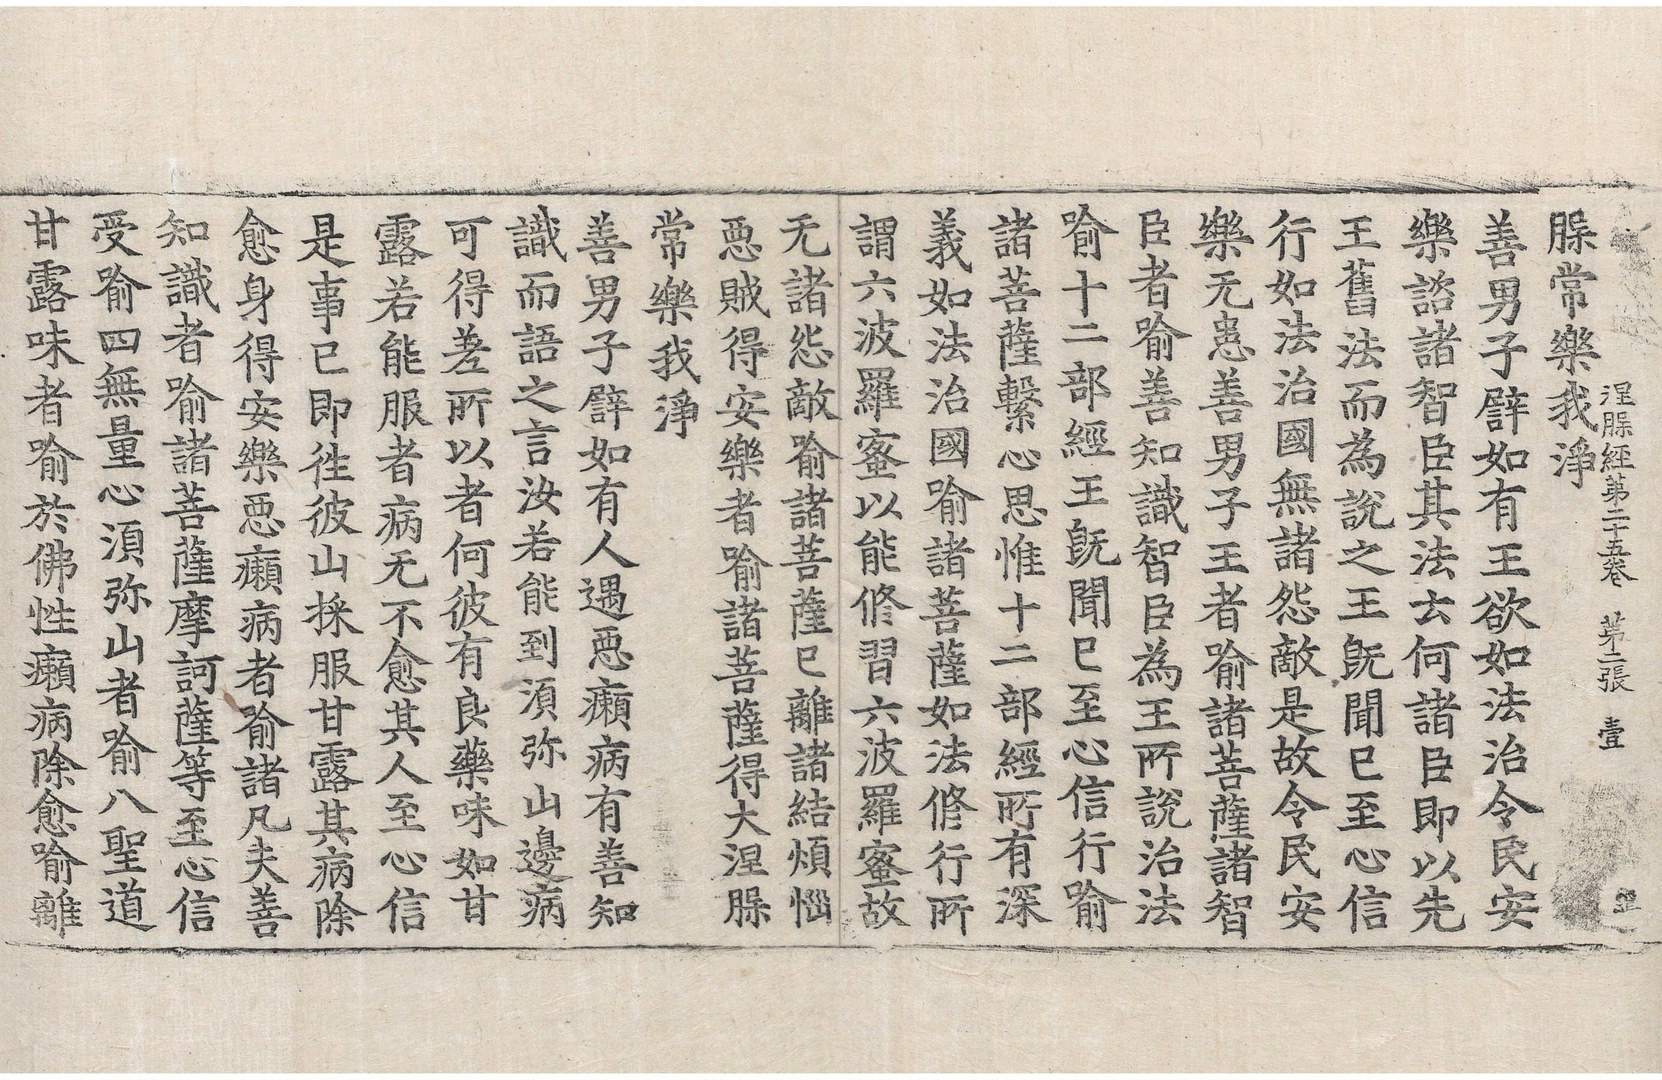 涅槃經第二十五卷　第二張　壹
槃常樂我淨
善男子譬如有王欲如法治令民安
樂諮諸智臣其法云何諸臣即以先
王舊法而為說之王旣聞已至心信
行如法治國無諸怨敵是故令民安
樂无患善男子王者喻諸菩薩諸智
臣者喻善知識智臣為王所說治法
喻十二部經王旣聞已至心信行喻
諸菩薩繫心思惟十二部經所有深
義如法治國喻諸菩薩如法修行所
謂六波羅蜜以能修習六波羅蜜故
无諸怨敵喻諸菩薩已離諸結煩惱
惡賊得安樂者喻諸菩薩得大涅槃
常樂我淨
善男子譬如有人遇惡癩病有善知
識而語之言汝若能到須弥山邊病
可得差所以者何彼有良藥味如甘
露若能服者病无不愈其人至心信
是事已即往彼山採服甘露其病除
愈身得安樂惡癩病者喻諸凡夫善
知識者喻諸菩薩摩訶薩等至心信
受喻四無量心須弥山者喻八聖道
甘露味者喻於佛性癩病除愈喻離